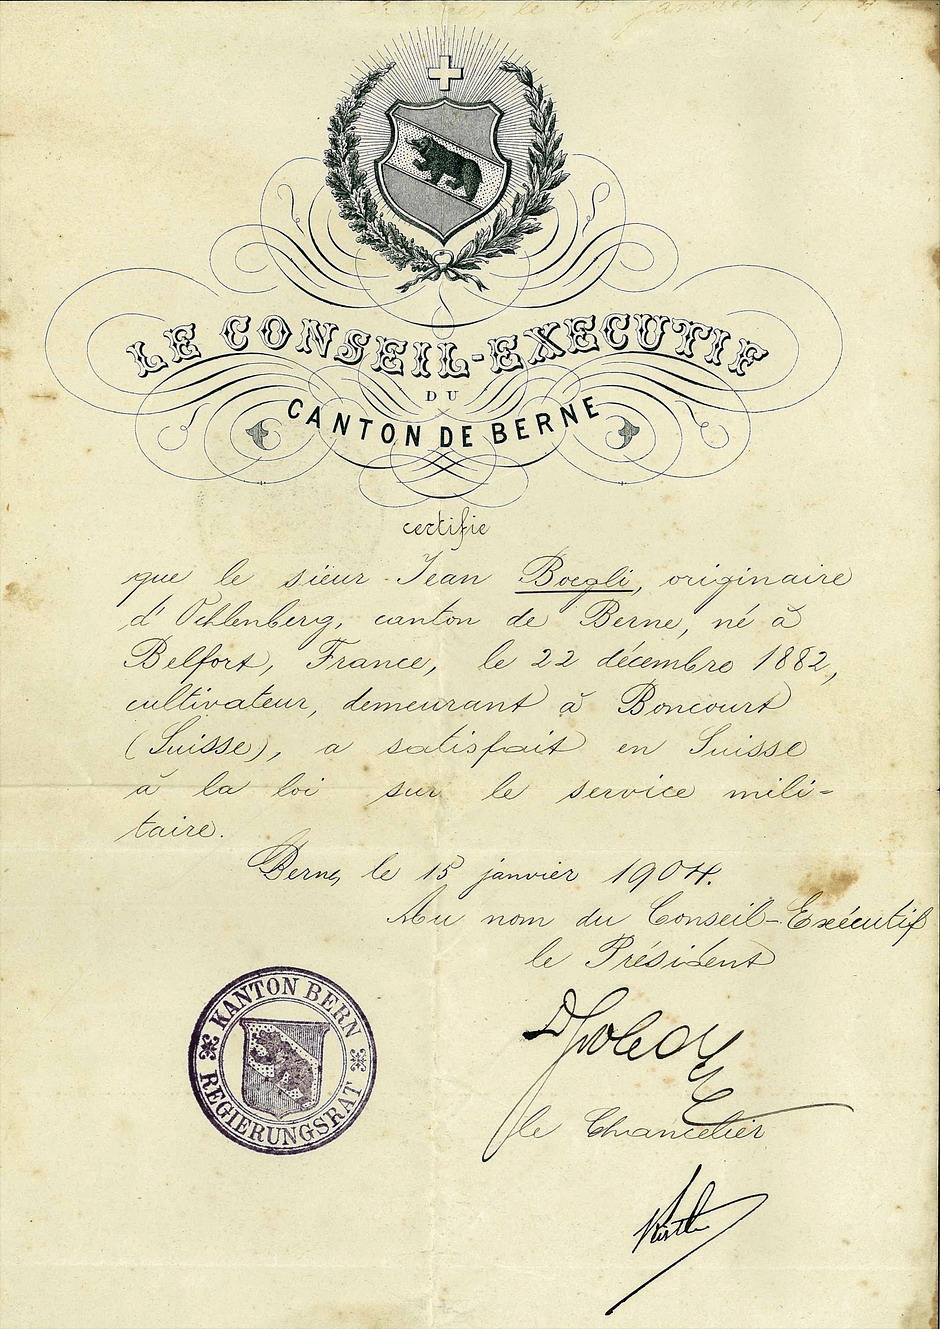 LE CONSEIL-EXECUTIF
DU
CANTON DE BERNE
certifie
que le sieur Jean Boegli, originaire
d'Ochlenberg, canton de Berne, né à
Belfort, France, le 22 décembre 1882,
cultivateur, demeurant à Boncourt
(Suisse), a satisfait en Suisse
à la loi sur le service mili=
taire.
Berne, le 15 janvier 1904.
Au nom du Conseil-Exécutif
le Président
le Chancelier
KANTON BERN
REGIERUNGSRAT